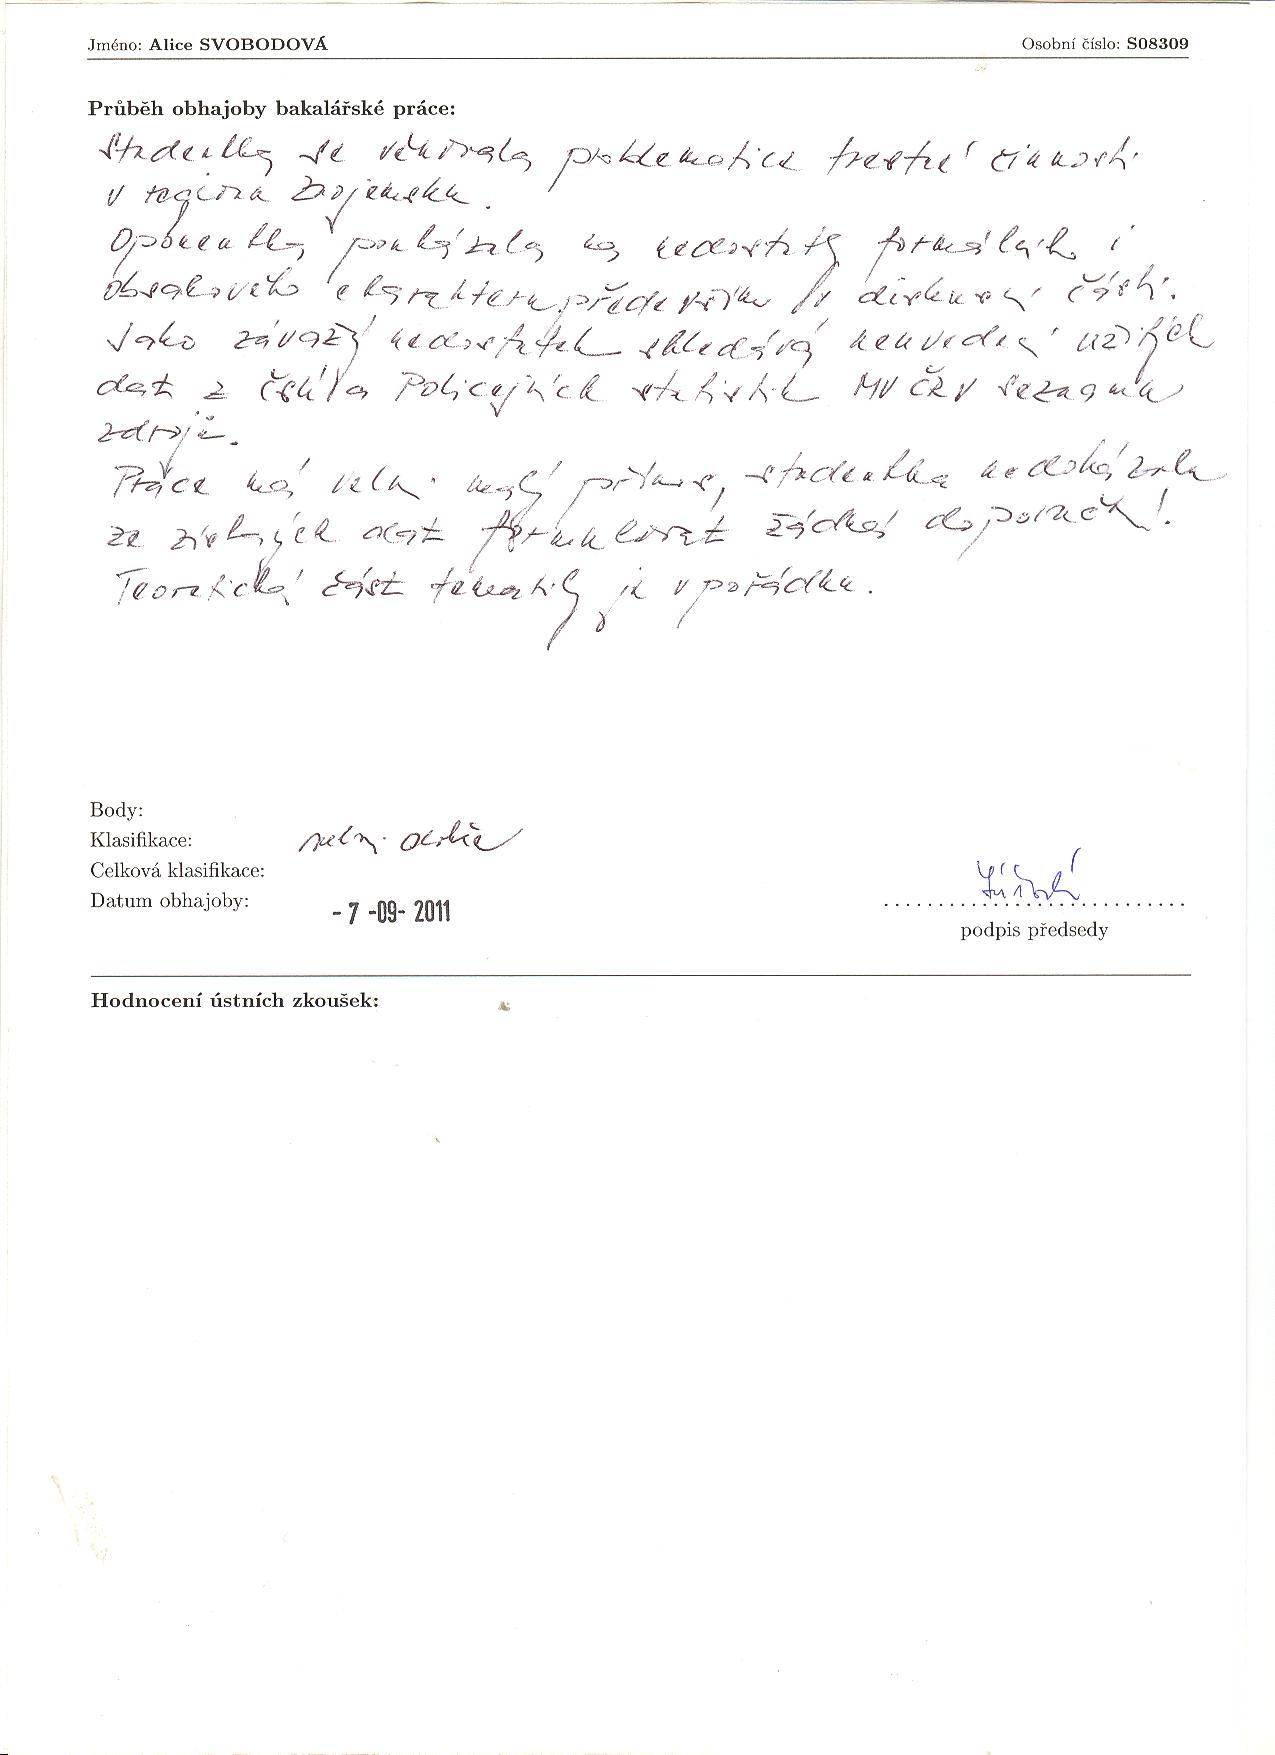 Jméno: Alice SVOBODOVÁ Osobní číslo: S08309
Průběh obhajoby bakalářské práce:
Studentka se věnovala problematice trestné činnosti
v regionu Znojemska.
Oponentka poukázala na nedostatky formálních i
obsahového charakteru, především v diskusní části.
Jako závažný nedostatek shledává neuvedení užitých
dat z Policejních statistik MV ČR v seznamu
zdrojů.
Práce má velmi malý přínos, studentka nedokázala
ze získaných dat formulovat žádná doporučení.
Teoretická část tematicky je v pořádku.
Body:
Klasifikace: velmi dobře
Celková klasifikace:
Datum obhajoby: - 7 -09- 2011
podpis předsedy
Hodnocení ústních zkoušek: